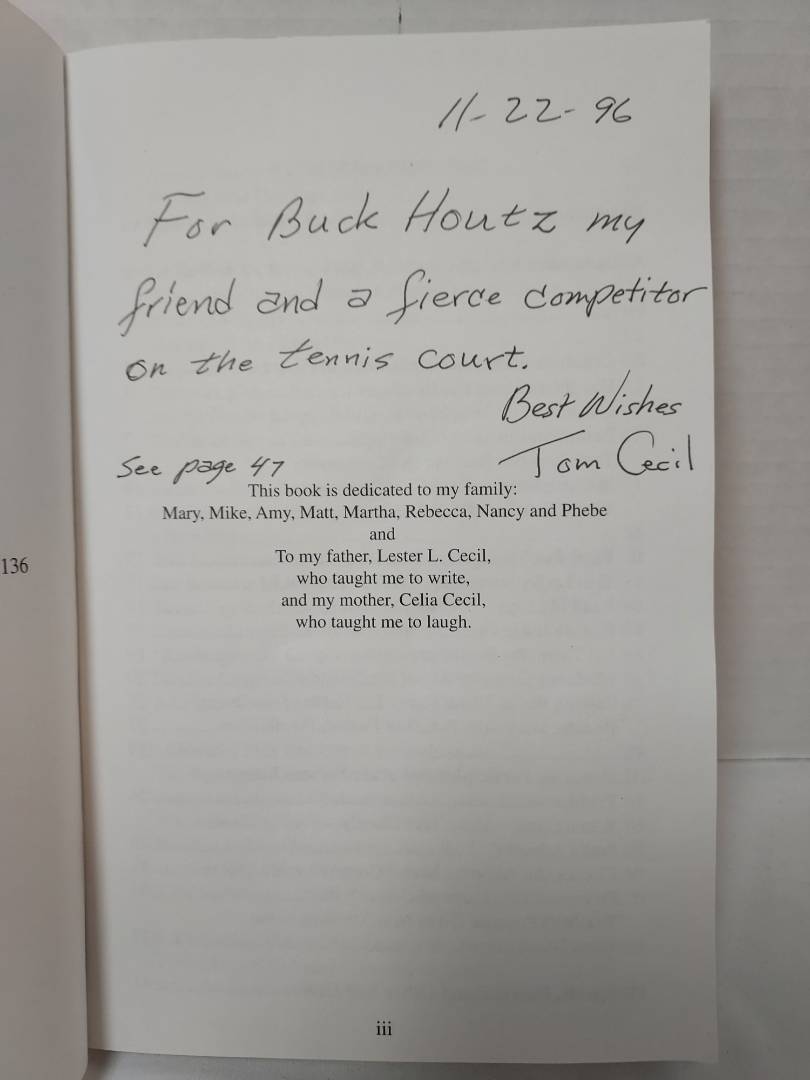 11-22-96
For Buck Houtz my
friend and a fierce competitor
on the tennis court.
Best Wishes
Tom Cecil
See page 47
This book is dedicated to my family:
Mary, Mike, Amy, Matt, Martha, Rebecca, Nancy and Phebe
and
To my father, Lester L. Cecil,
who taught me to write,
and my mother, Celia Cecil,
who taught me to laugh.
136
iii